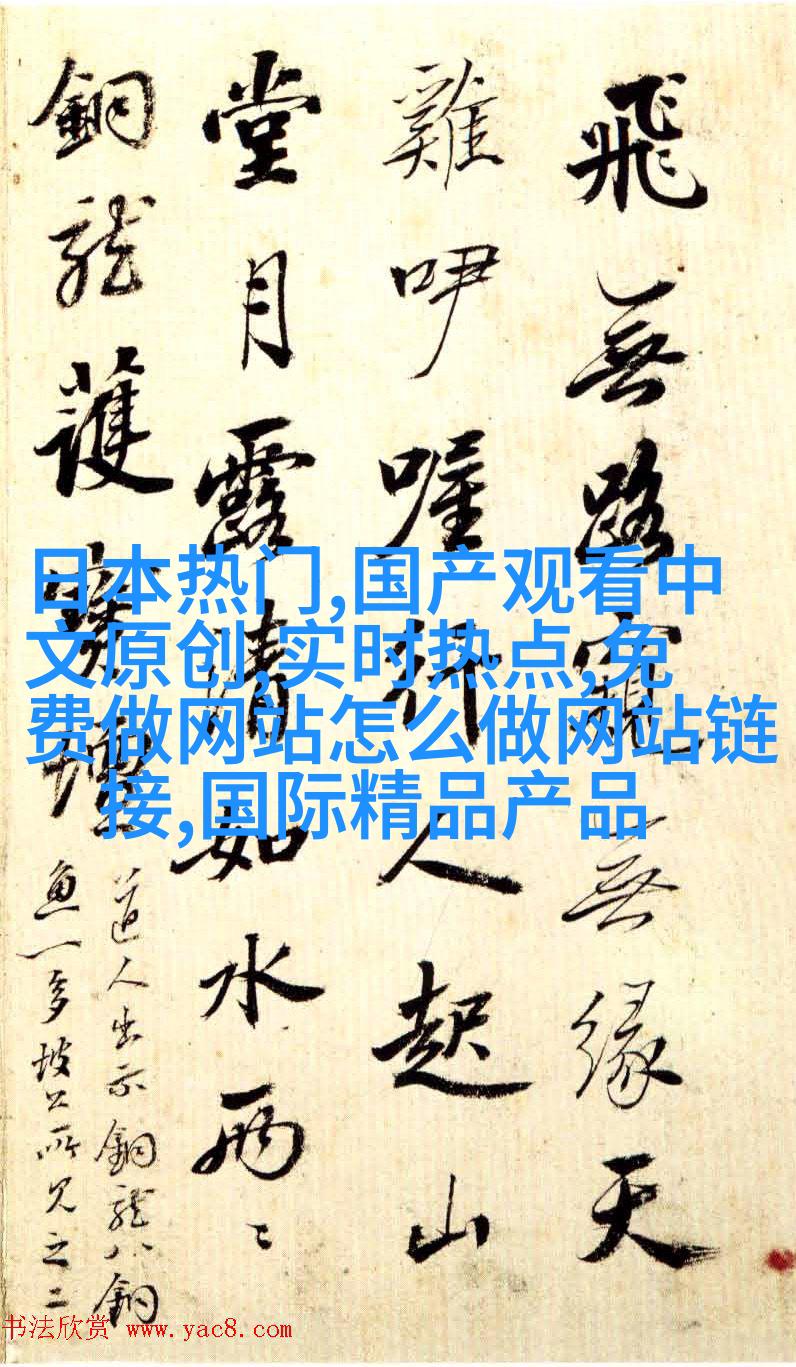 飛無路無緣天
雞咿喔行人起山
堂月露晴如水兩〻
銅龍護寶壇
道人出示銅龍八銅
魚一多坡公所見之二
日本热门,国产观看中
文原创,实时热点,免
费做网站怎么做网站链
接,国际精品产品
书法欣赏 www.yac8.com